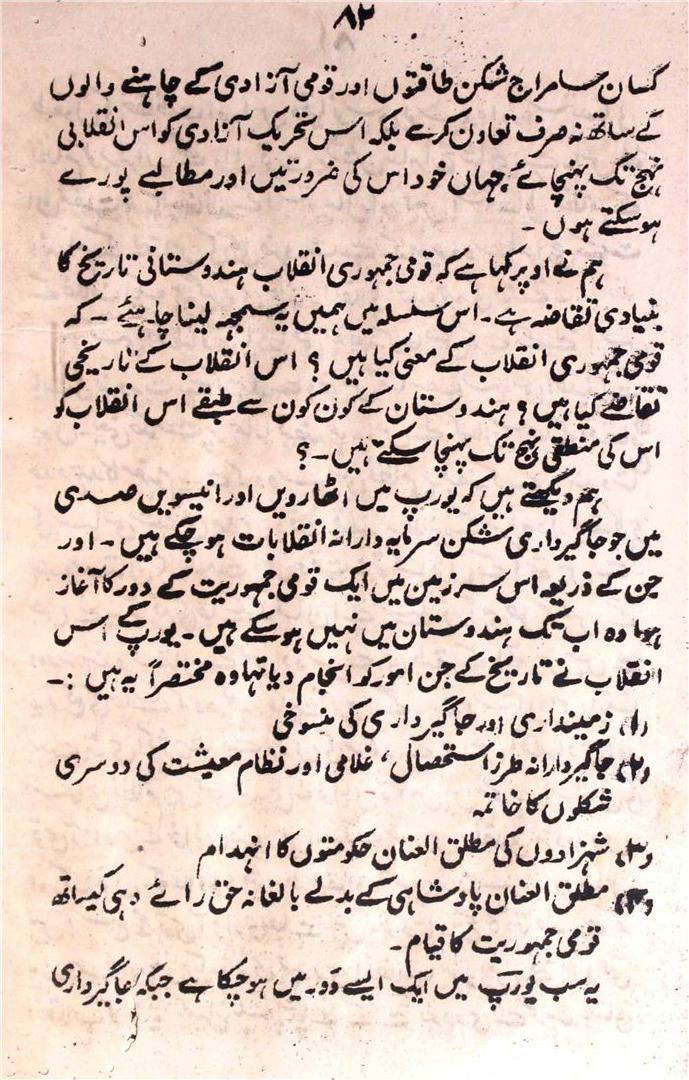 ۸۲
کسان سامراج شکن طاقتوں اور قومی آزادی کے چاہنے والوں
کے ساتھ نہ صرف تعاون کرے بلکہ اس تحریک آزادی کو اس انقلابی
نہج تک پہنچائے جہاں خود اس کی ضرورتیں اور مطالبے پورے
ہو سکتے ہوں ۔
ہم نے اوپر کہا ہے کہ قومی جمہوری انقلاب ہندوستانی تاریخ کا
بنیادی تقاضہ ہے ۔ اس سلسلہ میں ہمیں یہ سمجھ لینا چاہئے ۔ کہ
قومی جمہوری انقلاب کے معنی کیا ہیں ؟ اس انقلاب کے تاریخی
تقاضے کیا ہیں ؟ ہندوستان کے کون کون سے طبقے اس انقلاب کو
اس کی منطقی نہج تک پہنچا سکتے ہیں ۔ ؟
ہم دیکھتے ہیں کہ یورپ میں اٹھارویں اور انیسویں صدی
میں جو جاگیرداری شکن سرمایہ دارانہ انقلابات ہو چکے ہیں ۔ اور
جن کے ذریعہ اس سرزمین میں ایک قومی جمہوریت کے دور کا آغاز
ہوا وہ اب تک ہندوستان میں نہیں ہو سکے ہیں ۔ یورپ کے اس
انقلاب نے تاریخ کے جن امور کو انجام دیا تھا وہ مختصراً یہ ہیں :۔
(۱) زمینداری اور جاگیرداری کی منسوخی
(۲) جاگیردارانہ طرز استحصال ، غلامی اور نظام معیشت کی دوسری
شکلوں کا خاتمہ
(۳) شہزادوں کی مطلق العنان حکومتوں کا انہدام
(۴) مطلق العنان پادشاہی کے بدلے بالغانہ حق رائے دہی کیساتھ
قومی جمہوریت کا قیام ۔
یہ سب یورپ میں ایک ایسے دور میں ہو چکا ہے جبکہ جاگیرداری